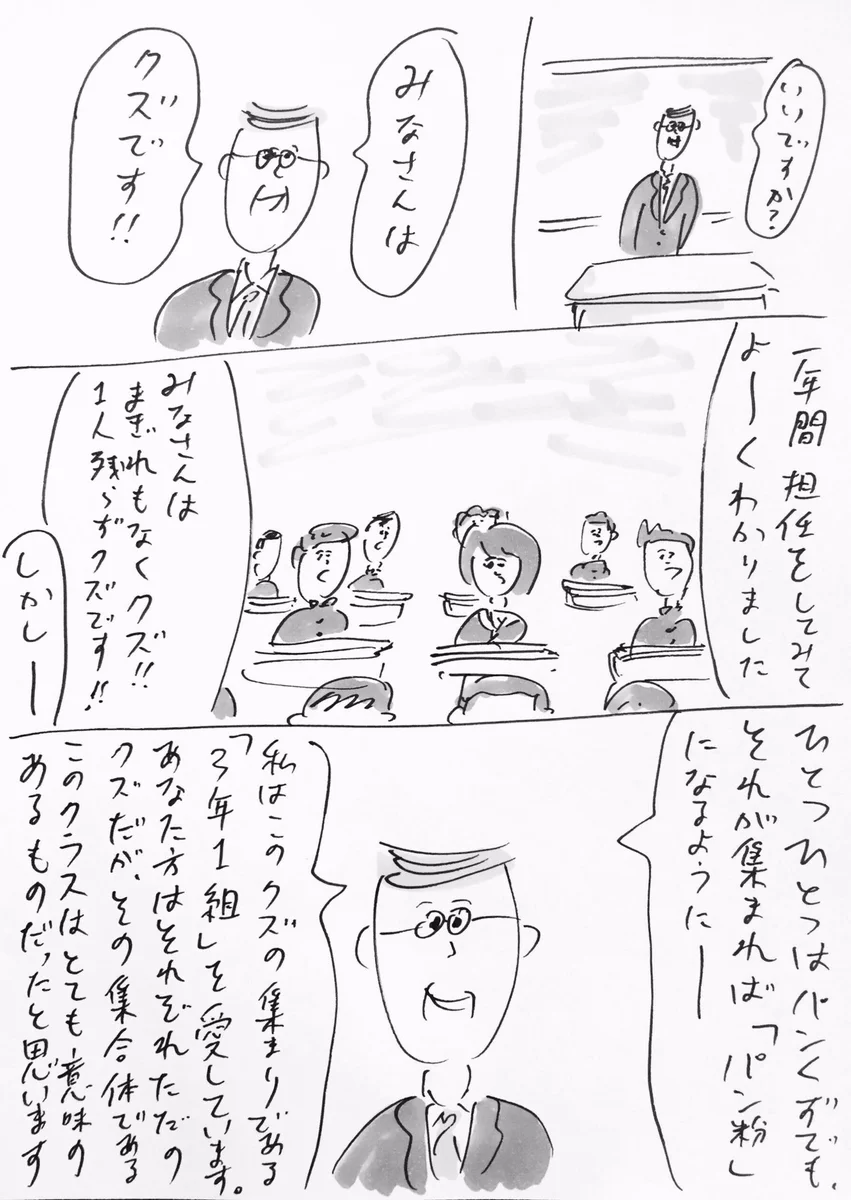 いいですか?
みなさんは
クズです!!
一年間担任をしてみて
よーくわかりました
みなさんは
まぎれもなくクズ!!
1人残らずクズです!!
しかしー
ひとつひとつはパンくずでも、
それが集まれば「パン粉」
になるようにー
私はこのクズの集まりである
「3年1組」を愛しています。
あなた方はそれぞれただの
クズだが、その集合体である
このクラスはとても意味の
あるものだったと思います